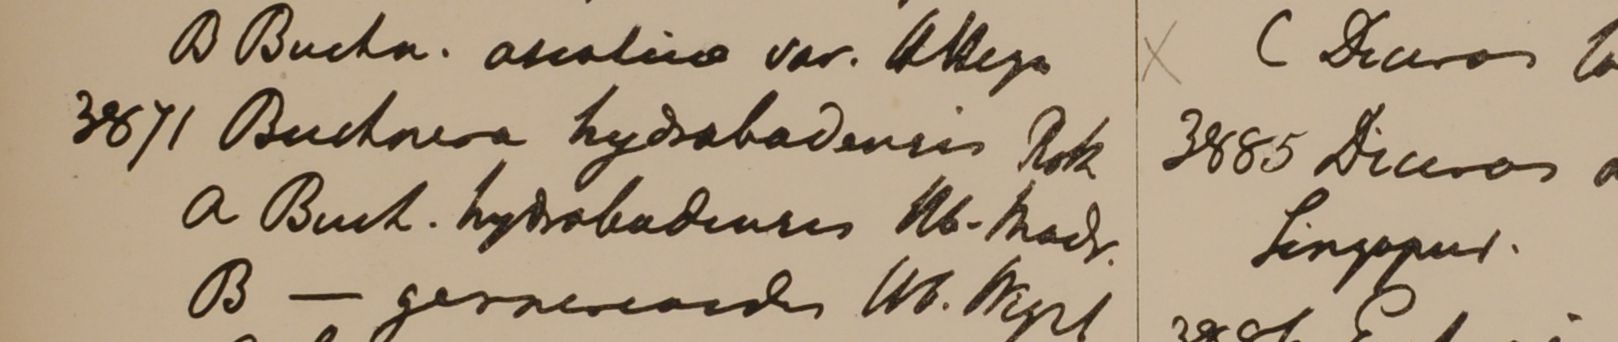 B Buchn. asiatica var. Hb Heyn
3871 Buchnera hydrabadensis Rotk
a Buch. hydrabadensis Hb. Madr.
B — Hb. Wight
X C Diceros
3885 Diceros
Singapur.